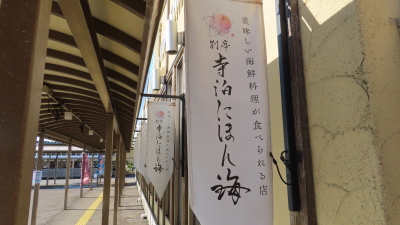 美味しい海鮮料理が食べられる店
別亭
寺泊にほん海
寺泊にほん海